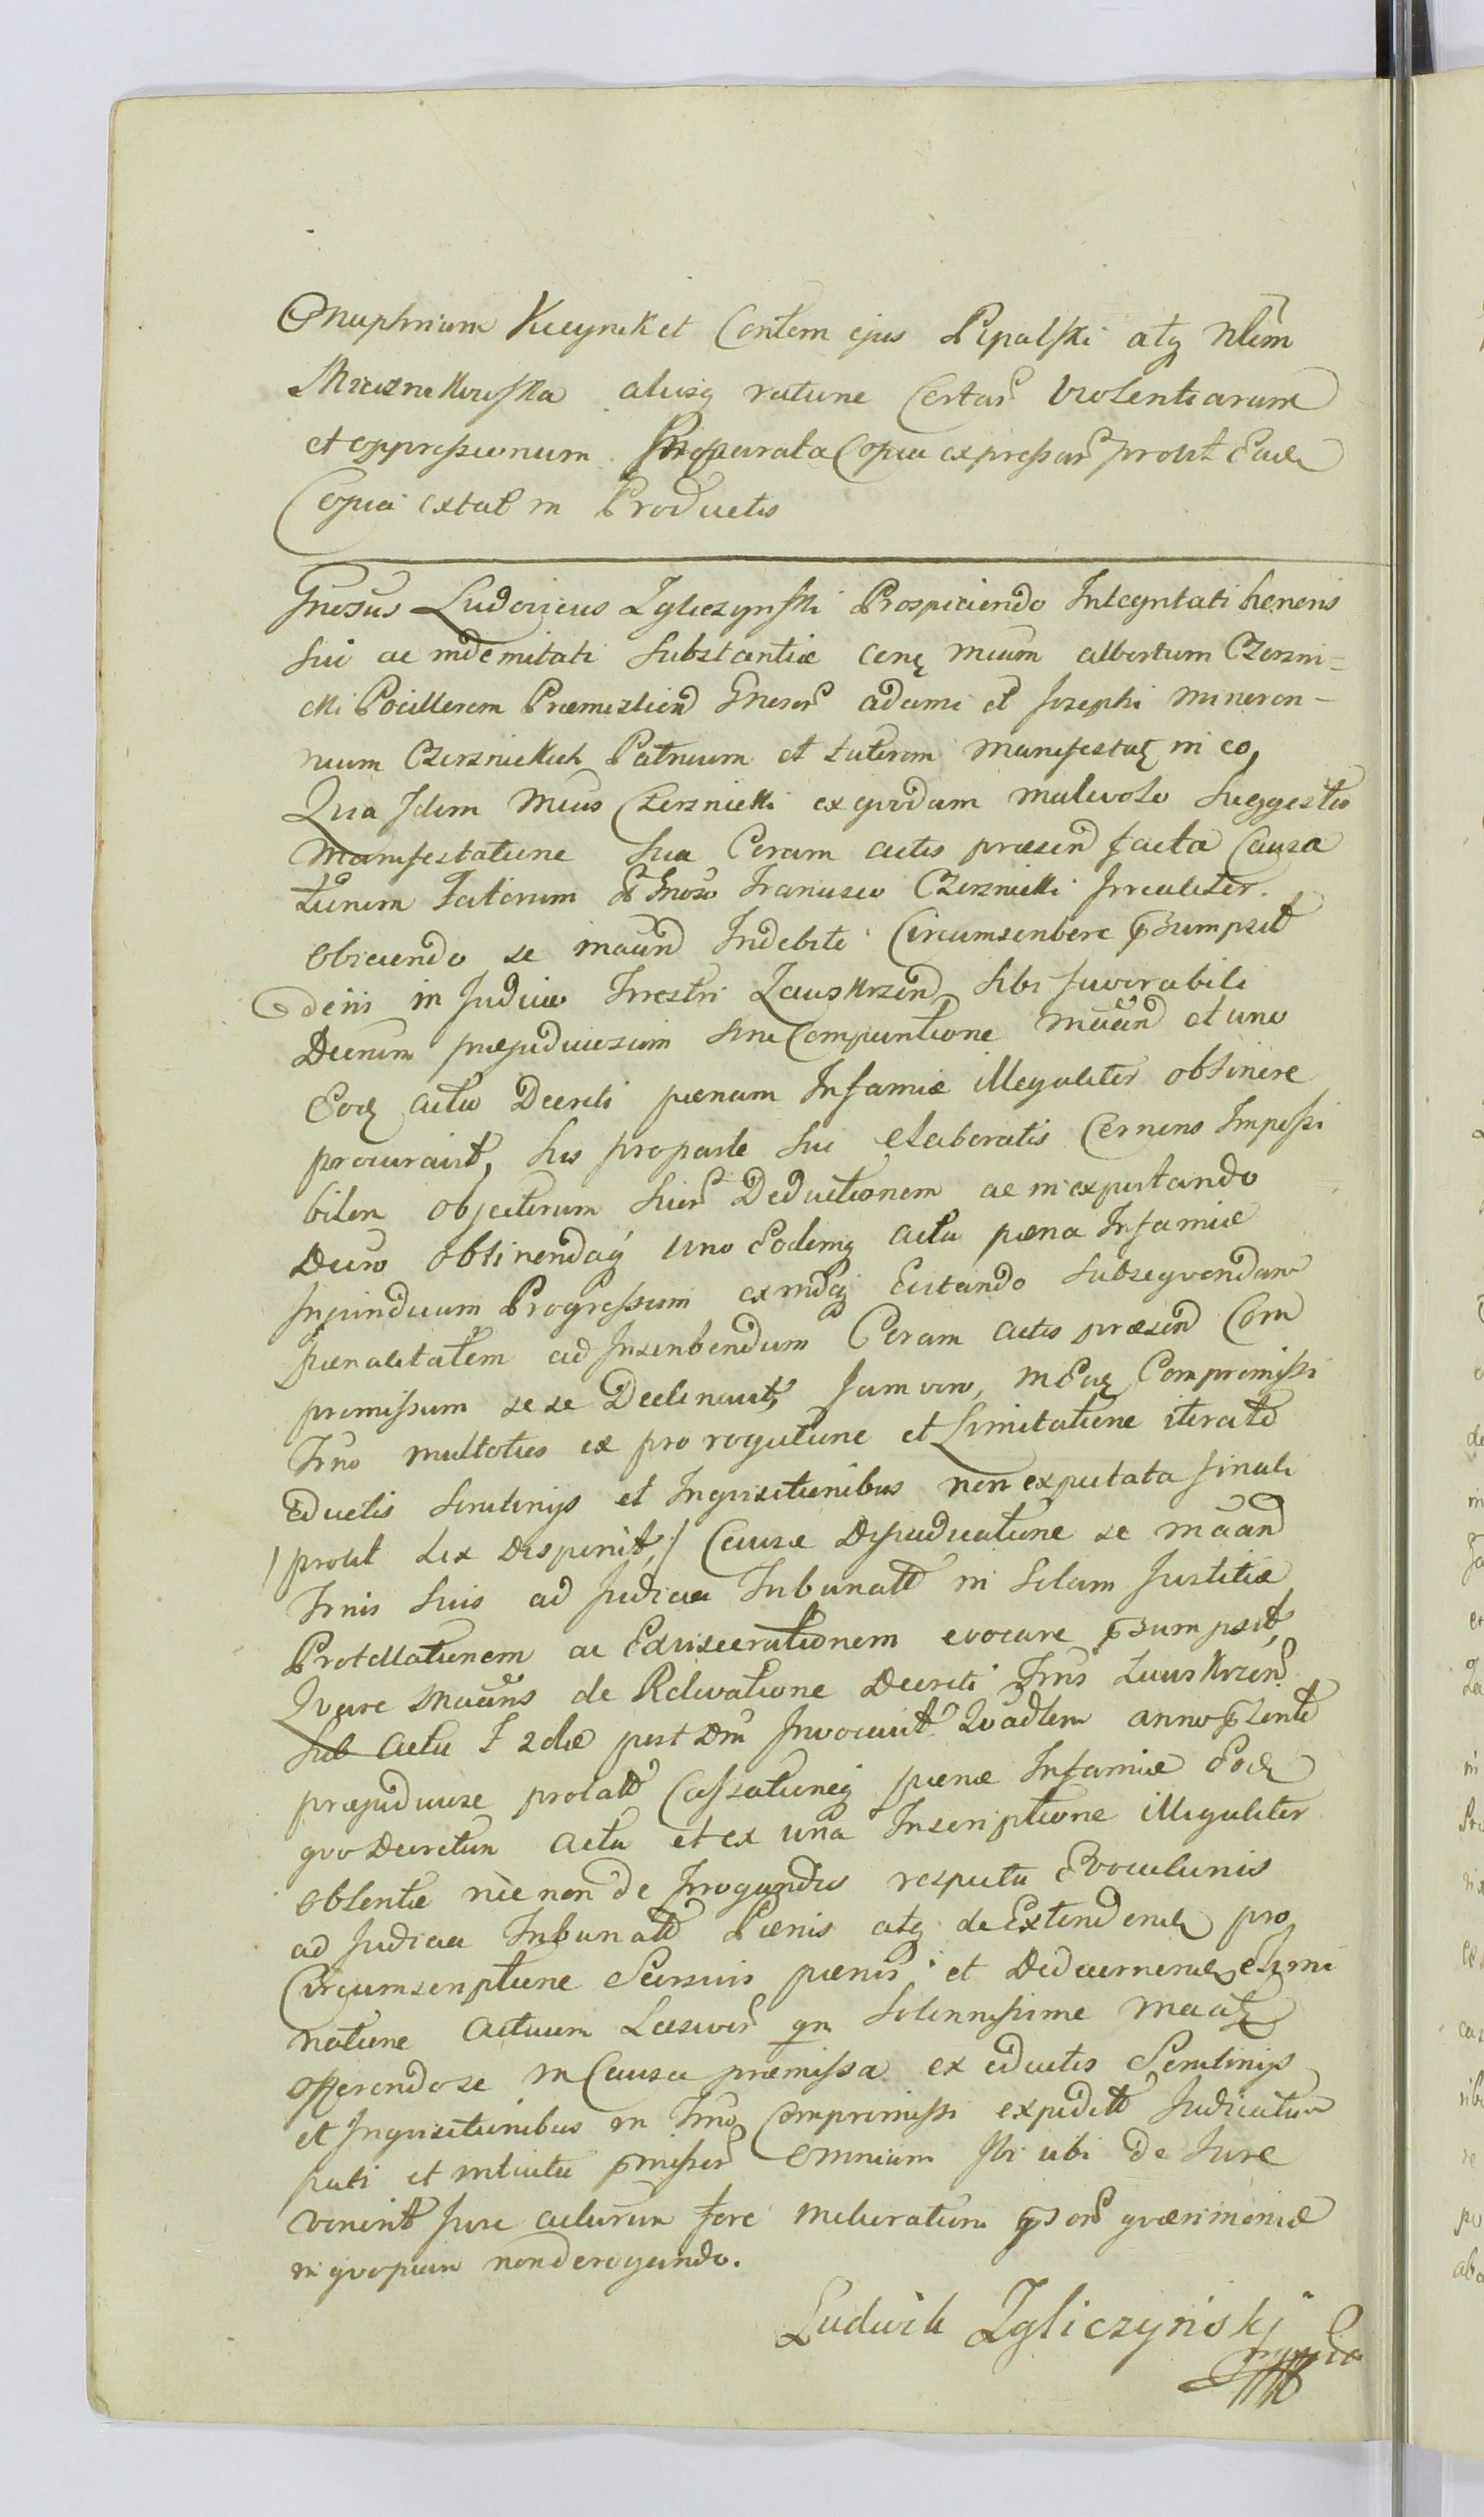 Onuphrium Kucynik et Contem ejus Pipalski atq Nlem
Mieznikowska aliisq ratione Certar Violentiarum
et oppressionum Praeparata Copia expressar prout Eade
Copia extat in Productis
Gnesus Ludovicus Zgliczynski Prospiciendo Integritati honoris
sui ac indemnitati Substantiae conq Mcum albertum Czerni=
cki Pocillerem Praemislien Gnesor adami et Josephi minoren-
nium Czernickich Patruum et tutorem manifestat in eo,
Quia Idem Mcus Czernicki ex quodam malevolo Suggestio
Manifestatione sua Coram actis praesen facta Causa
Gnoso Francisco Czernicki Irrealiter
obiciendo se maan Indebite Circumscribere psumpsit
deiis in Judicio Trrestri Zawskrzen sibi favorabili
Decrum praejudiciosum sine Comparitione maan et uno
Eode actu Decreti paenam Infamiae illegaliter obtinere
procuravit, his pro parte sui elaboratis Cernens Impossi
bilem objectorum suor Deductionem ac in expectando
Decro obtinendaq uno Eodemq actu paena Infamiae
Injuridicum Progressum exindeq Evitando Subsequendam
paenalitatem ad Inscribendum Coram actis praesen Com
promissum sese Declinavit, Jam vero, in Eoq Compromissi
Trno multoties ex prorogatione et Limitatione iterate
Eductis Scrutinys et Inquisitionibus non expectata finali
/prout Lex Disponit,/ Causae Dijudicatione se maan
Trnis suis ad Judicia Tribunalt in Solam Justitiae
Protellationem ac Exviscerationem evocare psumpsit,
Quare Maans de Relevatione Decreti Trris Zawskrzen
Sub actu F 2dae post Dm Invocavit Quadlem anno psente
praejudiciose prolatt Cassationeq paenae Infamiae Eode
quo Decretum actu et ex una Inscriptione illegaliter
obtentae nec non de Irrogandis respectu Evocationis
ad Judicia Tribunalt Paenis atq de Extenden pro
Circumscriptione paenis et Decernen Elimi
natione actuum Laesivor qm Solennissime maat
offerendo se in Causa praemissa ex eductis Scrutinys
et Inquisitionibus in Trno Compromissi expeditt Judicatum
pati et intuitu pmissor omnium Ibi ubi De Jure
venerit Jure acturum fore melioratem psor quaerimoniae
in quopiam non derogando.
Ludwik Zgliczynski